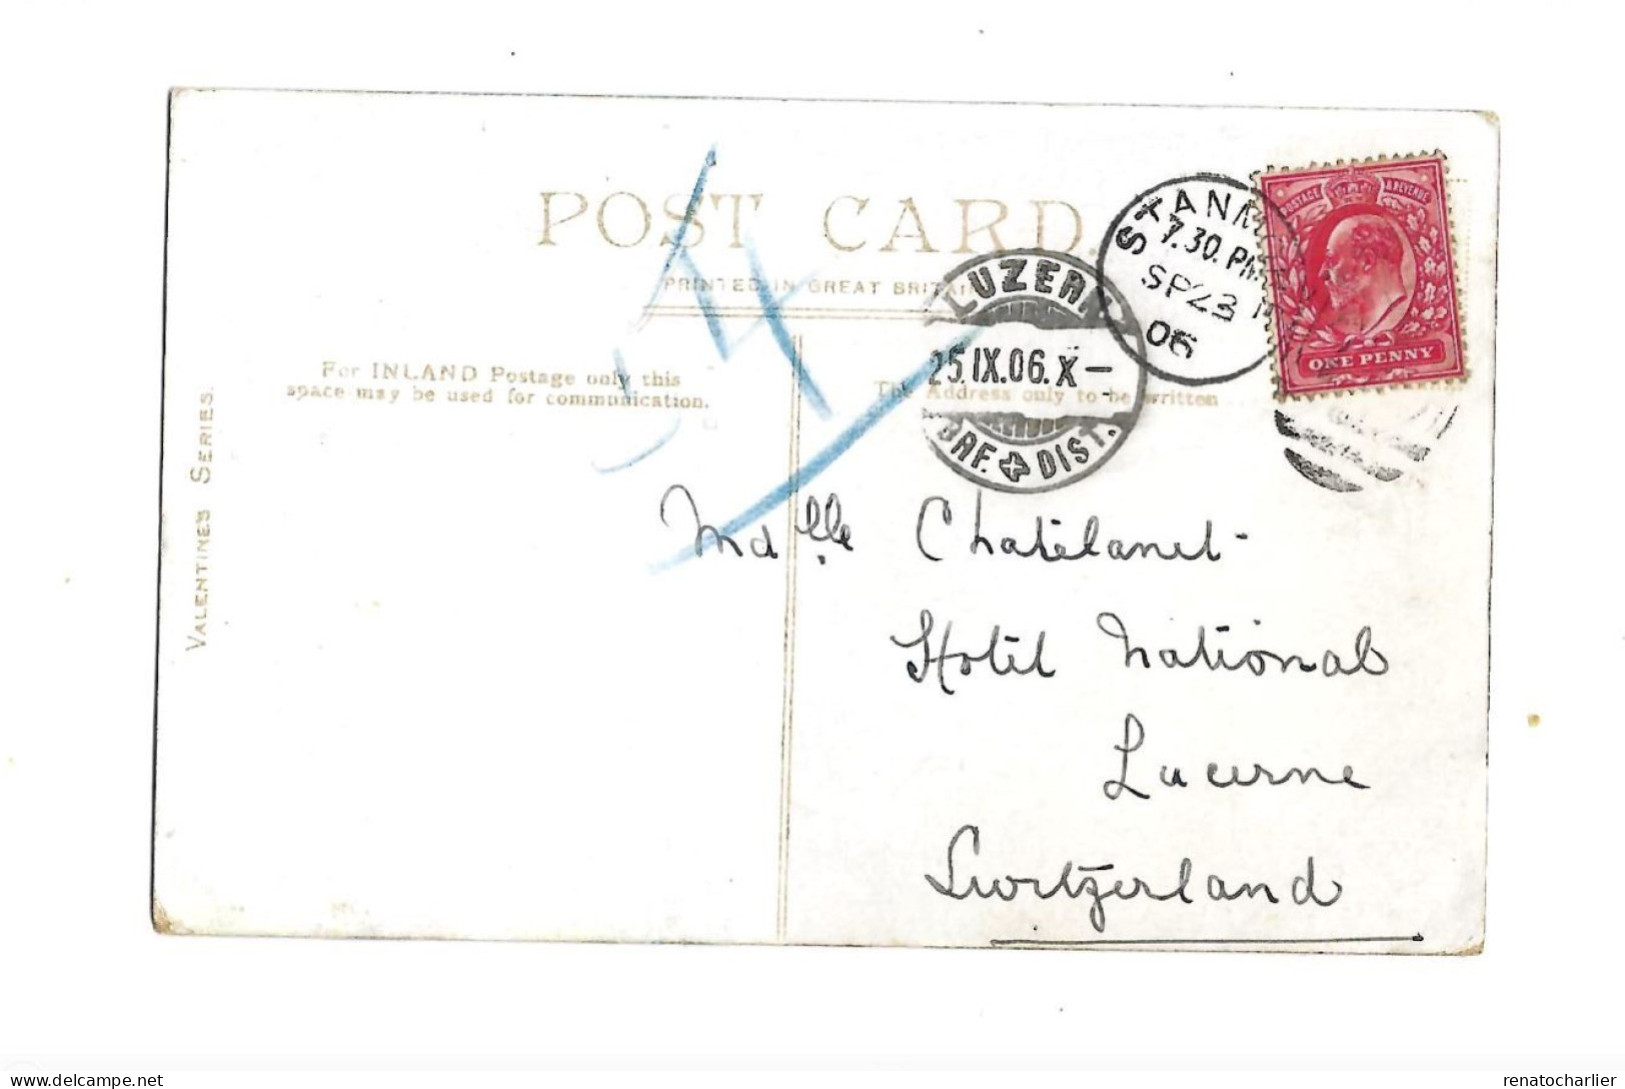 POST CARD.
PRINTED IN GREAT BRITAIN
For INLAND Postage only this
space may be used for communication.
The Address only to be written
VALENTINE'S SERIES.
STANM
7.30. PM
SP 23
06
POSTAGE & REVENUE
ONE PENNY
LUZERN
25.IX.06.X–
BRF. DIST.
Mdlle Chatelanet
Hotel National
Lucerne
Switzerland
delcampe.net
renatocharlier